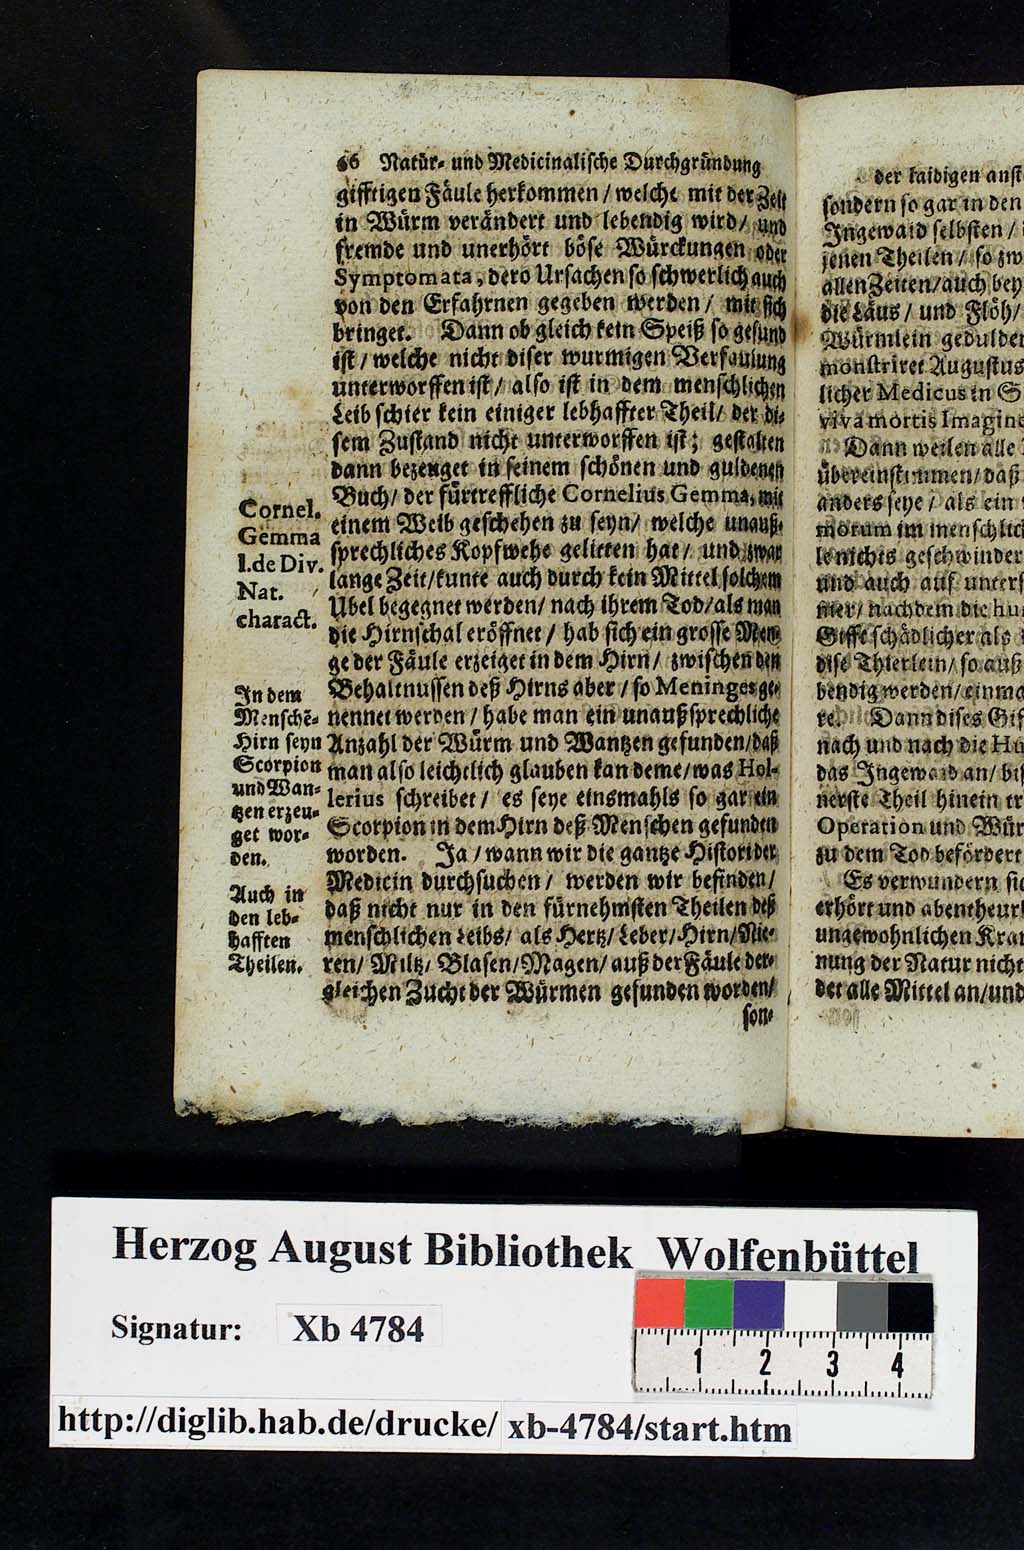 66 Natür- und Medicinalische Durchgründung
gifftigen Fäule herkommen / welche mit der Zeit
in Würm verändert und lebendig wird / und
fremde und unerhört böse Würckungen oder
Symptomata, dero Ursachen so schwerlich auch
von den Erfahrnen gegeben werden / mit sich
bringet. Dann ob gleich kein Speiß so gesund
ist / welche nicht diser wurmigen Verfaulung
unterworffen ist / also ist in dem menschlichen
Leib schier kein einiger lebhaffter Theil / der di-
sem Zustand nicht unterworffen ist; gestalten
dann bezeuget in seinem schönen und guldenen
Buch / der fürtreffliche Cornelius Gemma, mit
einem Weib geschehen zu seyn / welche unauß-
sprechliches Kopfwehe gelitten hat / und zwar
lange Zeit / kunte auch durch kein Mittel solchem
Ubel begegnet werden / nach ihrem Tod / als man
die Hirnschal eröffnet / hab sich ein grosse Men-
ge der Fäule erzeiget in dem Hirn / zwischen den
Behaltnussen deß Hirns aber / so Meninges ge-
nennet werden / habe man ein unaußsprechliche
Anzahl der Würm und Wantzen gefunden / daß
man also leichtlich glauben kan deme / was Hol-
lerius schreibet / es seye einsmahls so gar ein
Scorpion in dem Hirn deß Menschen gefunden
worden. Ja / wann wir die gantze Histori der
Medicin durchsuchen / werden wir befinden /
daß nicht nur in den fürnehmsten Theilen deß
menschlichen Leibs / als Hertz / Leber / Hirn / Nie-
ren / Miltz / Blasen / Magen / auß der Fäule der-
gleichen Zucht der Würmen gefunden worden /
son-
Cornel.
Gemma
l. de Div.
Nat.
charact.
In dem
Menschē-
Hirn seyn
Scorpion
und Wan-
tzen erzeu-
get wor-
den.
Auch in
den leb-
hafften
Theilen.
der laidigen
sondern so gar in den
Ingewaid selbsten /
jenen Theilen / so
allen Zeiten / auch bey
die Läus / und Flöh /
Würmlein
monstriret Augustus
licher Medicus in
viva mortis Imagine
Dann weilen alle
übereinstimmen / daß
anders seye / als ein
morum im
le nichts geschwinder
und auch auf
mer / nachdem die
Gifft schädlicher als
dise Thierlein / so auß
bendig werden /
re. Dann dises
nach und nach die
das Ingewaid an /
nerste Theil hinein
Operation und
zu dem Tod befördert
Es verwundern
erhört und
ungewohnlichen
nung der Natur nicht
det alle Mittel an / und
Herzog August Bibliothek Wolfenbüttel
Signatur: Xb 4784
1 2 3 4
http://diglib.hab.de/drucke/ xb-4784/start.htm